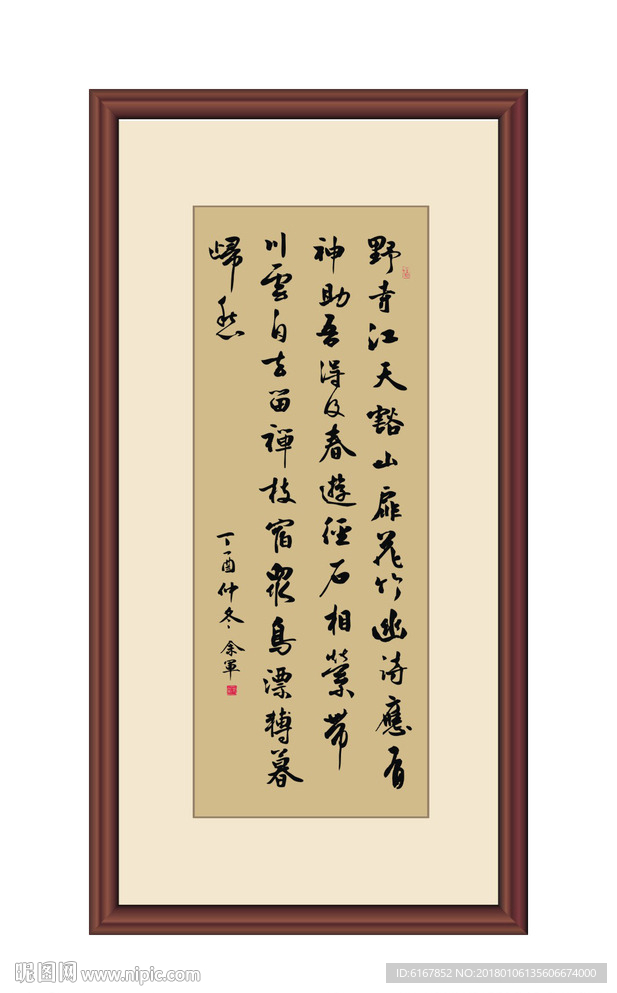 野寺江天豁山扉花竹幽詩應有
神助吾得及春遊徑石相縈帶
川雲自去留禪枝宿眾鳥漂轉暮
歸愁
丁酉仲冬 余軍
昵图网 www.nipic.com
ID:6167852 NO:20180106135606674000